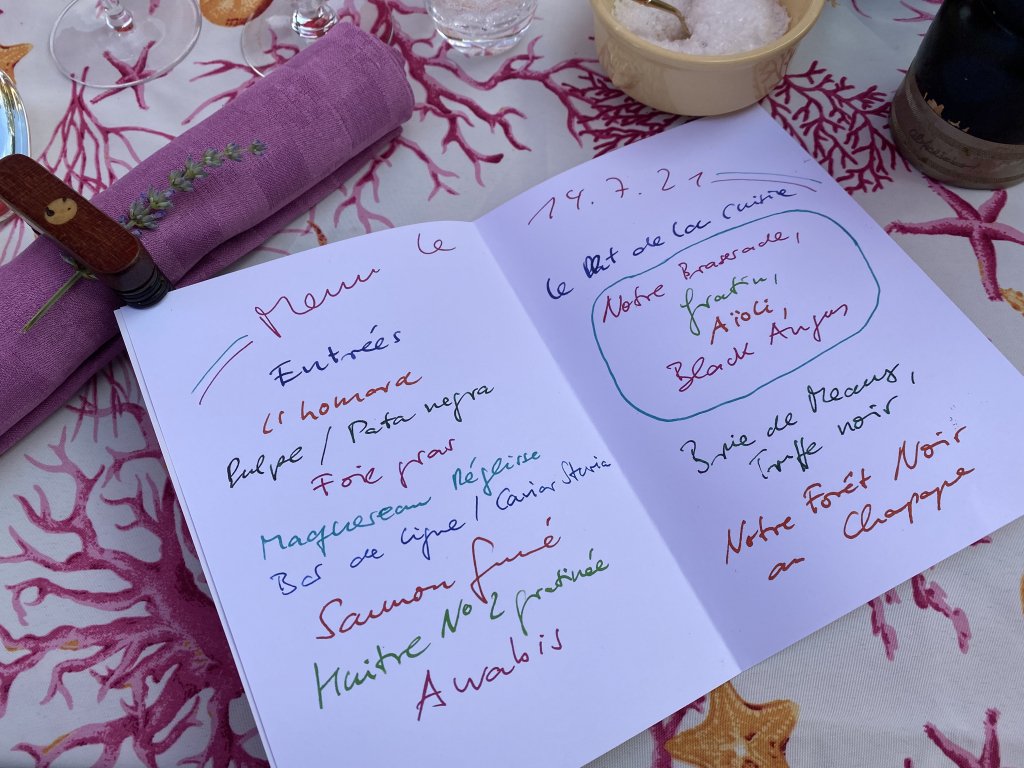 Menu le
Entrées
homard
Pulpe / Pata negra
Foie gras
Maquereau Réglisse
Bar de ligne / Caviar Sturia
Saumon fumé
Huitre No 2 gratinée
Awabis
14.7.21
Le Plat de la Cuisine
Notre Braserade,
gratin,
Aïoli,
Black Angus
Brie de Meaux,
Truffe noir
Notre Forêt Noir
au Chapagne